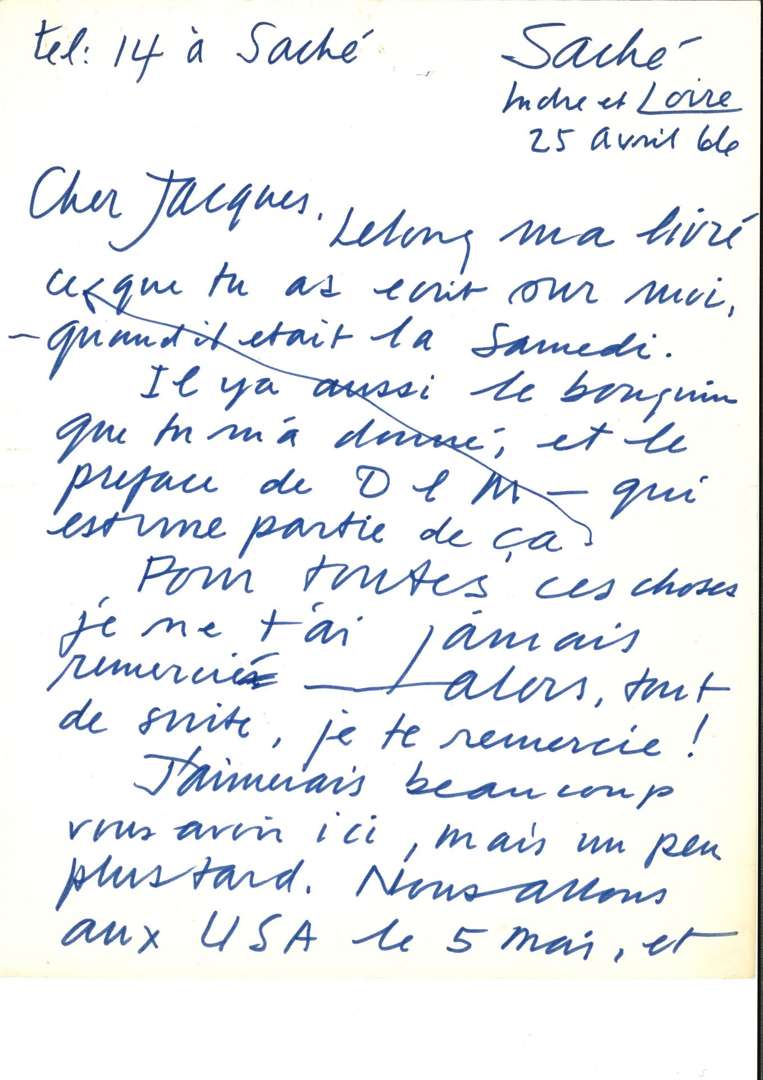 tel: 14 à Saché
Saché
Indre et Loire
25 Avril 66
Cher Jacques.
Lelong ma livré
ce que tu as ecrit sur moi,
— quand il etait la Samedi.
Il y a aussi le bouquin
que tu m'a donné, et le
preface de D l M — qui
est une partie de ça.
Pour toutes ces choses
je ne t'ai jamais
remercié — alors, tout
de suite, je te remercie!
J'aimerais beaucoup
vous avoir ici, mais un peu
plus tard. Nous allons
aux USA le 5 mai, et